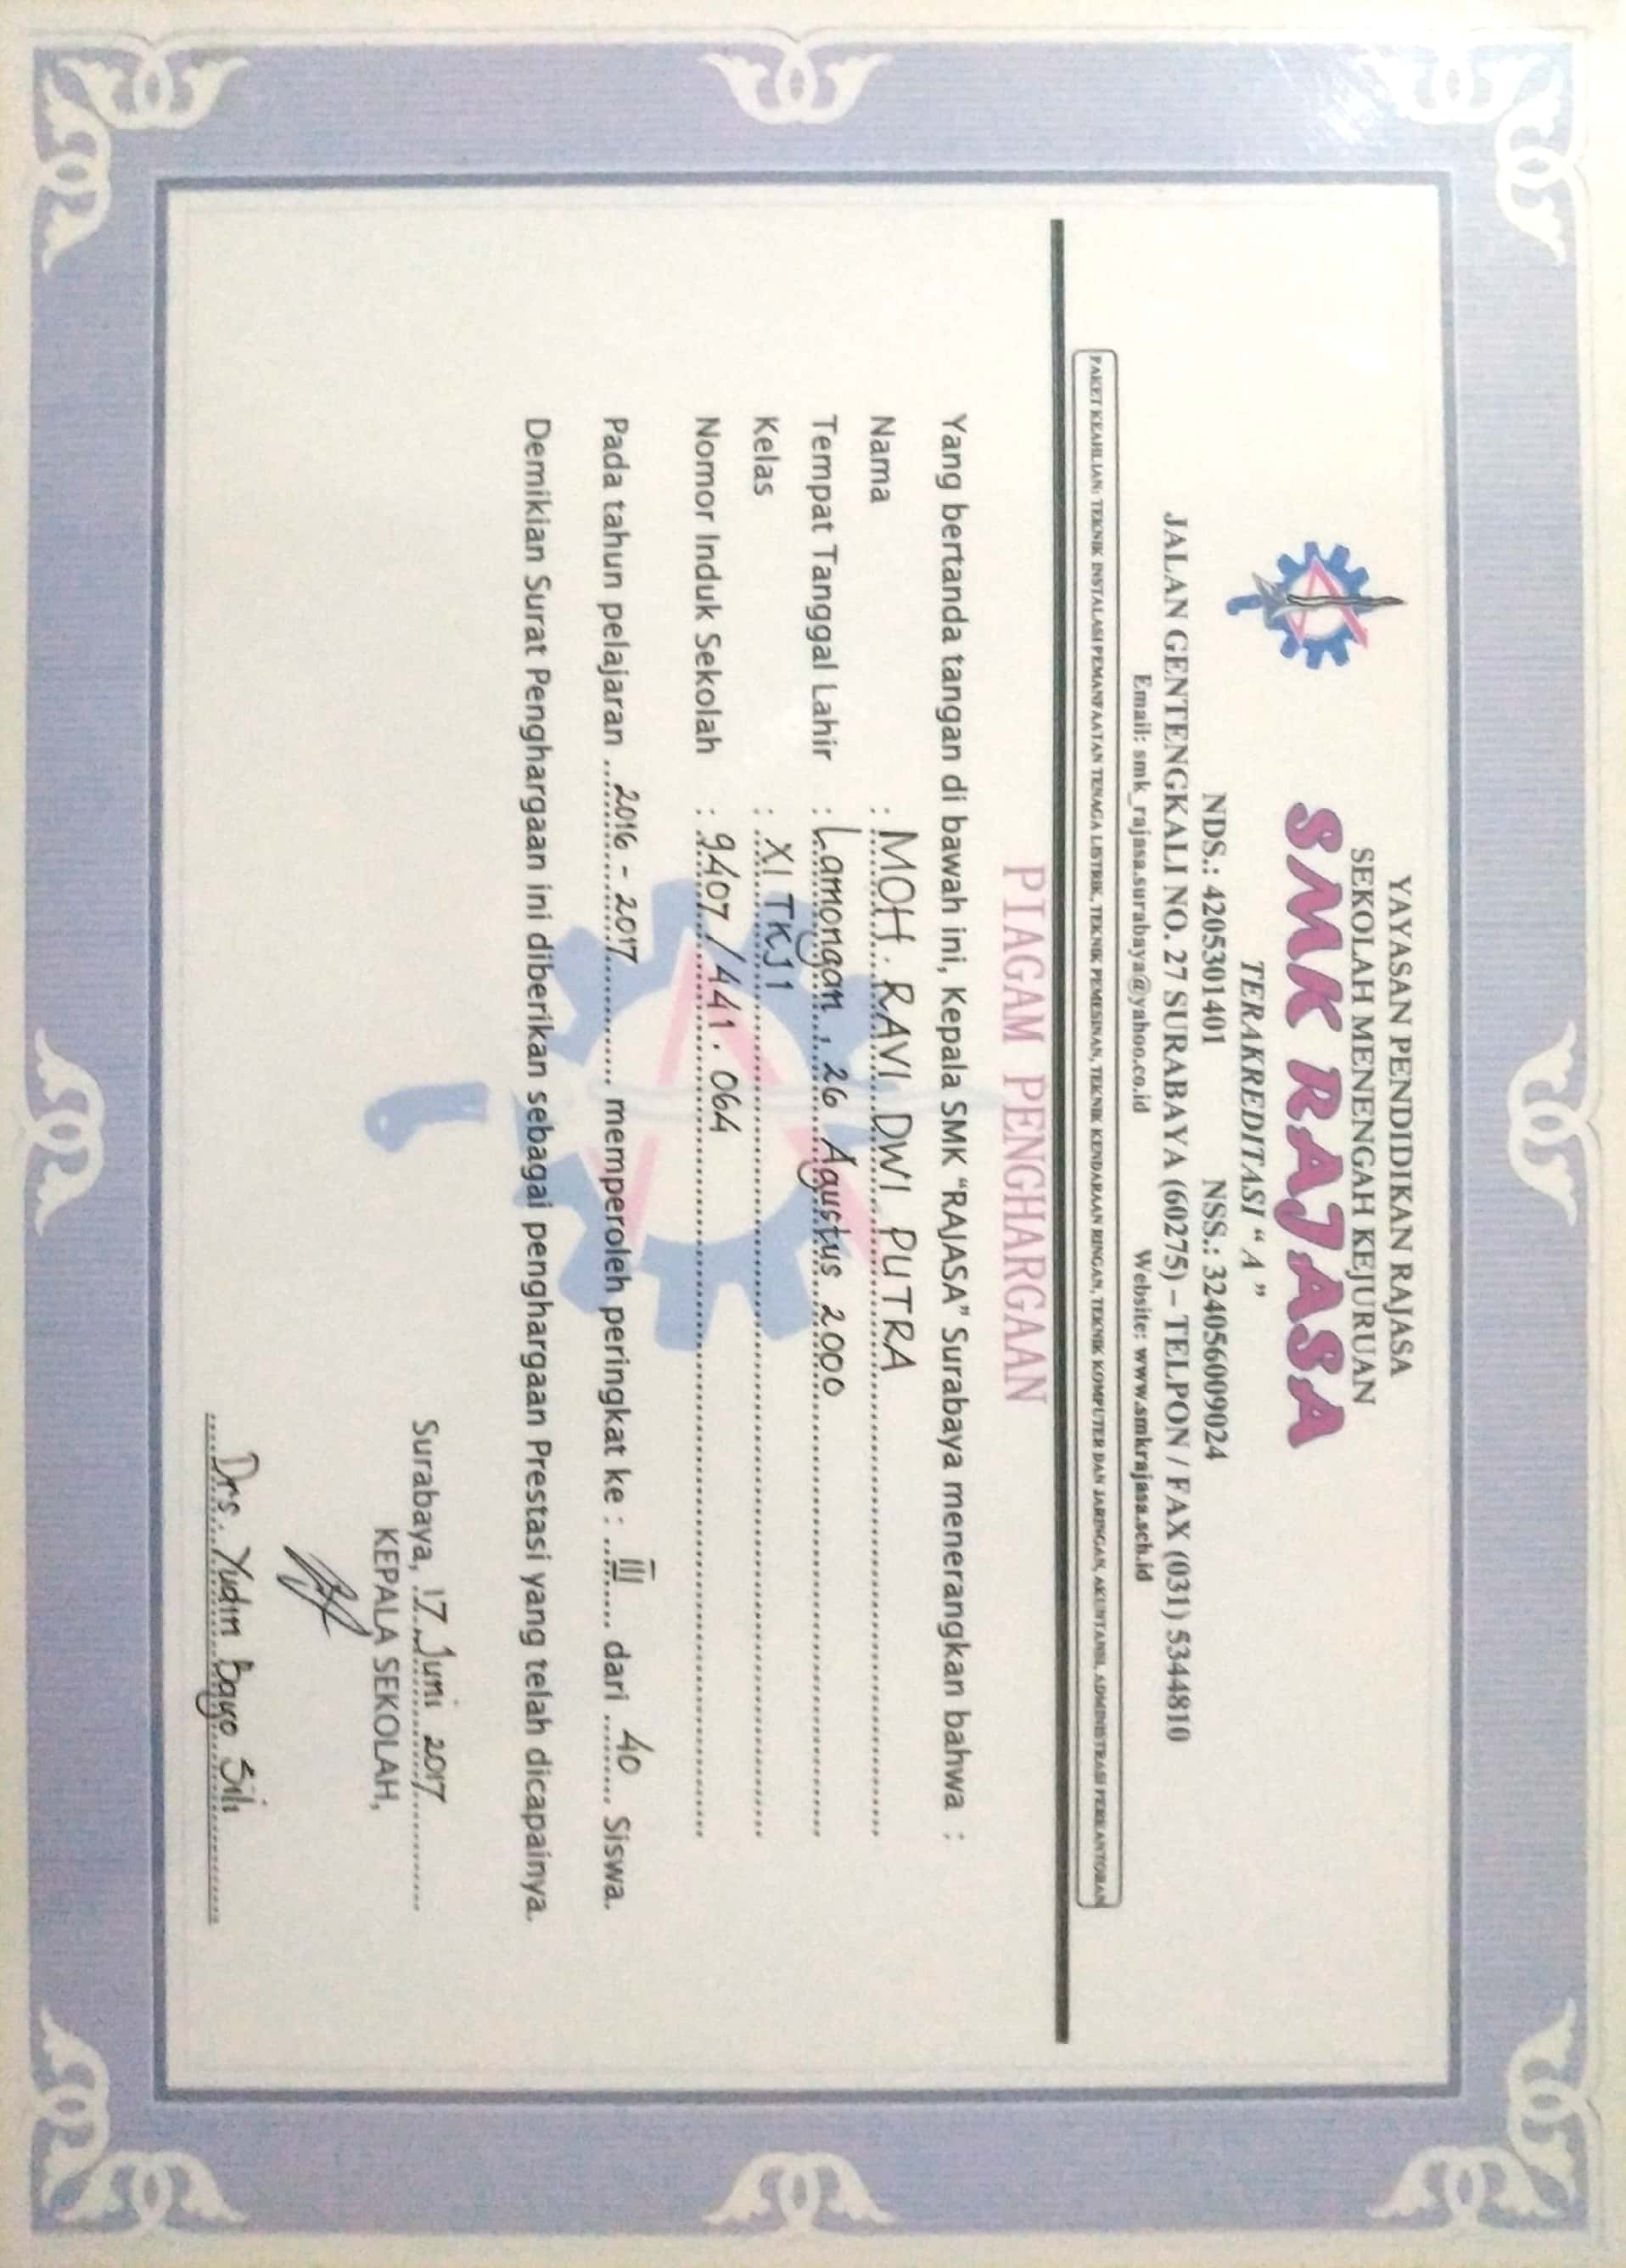 YAYASAN PENDIDIKAN RAJASA
SEKOLAH MENENGAH KEJURUAN
SMK RAJASA
TERAKREDITASI “ A ”
NDS.: 4205301401 NSS.: 324056009024
JALAN GENTENGKALI NO. 27 SURABAYA (60275) – TELPON / FAX (031) 5344810
Email: smk_rajasa.surabaya@yahoo.co.id Website: www.smkrajasa.sch.id
PAKET KEAHLIAN: TEKNIK INSTALASI PEMANFAATAN TENAGA LISTRIK, TEKNIK PEMESINAN, TEKNIK KENDARAAN RINGAN, TEKNIK KOMPUTER DAN JARINGAN, AKUNTANSI, ADMINISTRASI PERKANTORAN
PIAGAM PENGHARGAAN
Yang bertanda tangan di bawah ini, Kepala SMK “RAJASA” Surabaya menerangkan bahwa :
Nama : MOH. RAVI DWI PUTRA
Tempat Tanggal Lahir : Lamongan, 26 Agustus 2000
Kelas : XI TKJ1
Nomor Induk Sekolah : 9407/441.064
Pada tahun pelajaran 2016 - 2017 memperoleh peringkat ke : III dari 40 Siswa.
Demikian Surat Penghargaan ini diberikan sebagai penghargaan Prestasi yang telah dicapainya.
Surabaya, 17 Juni 2017
KEPALA SEKOLAH,
Drs. Yudin Bayo Sili